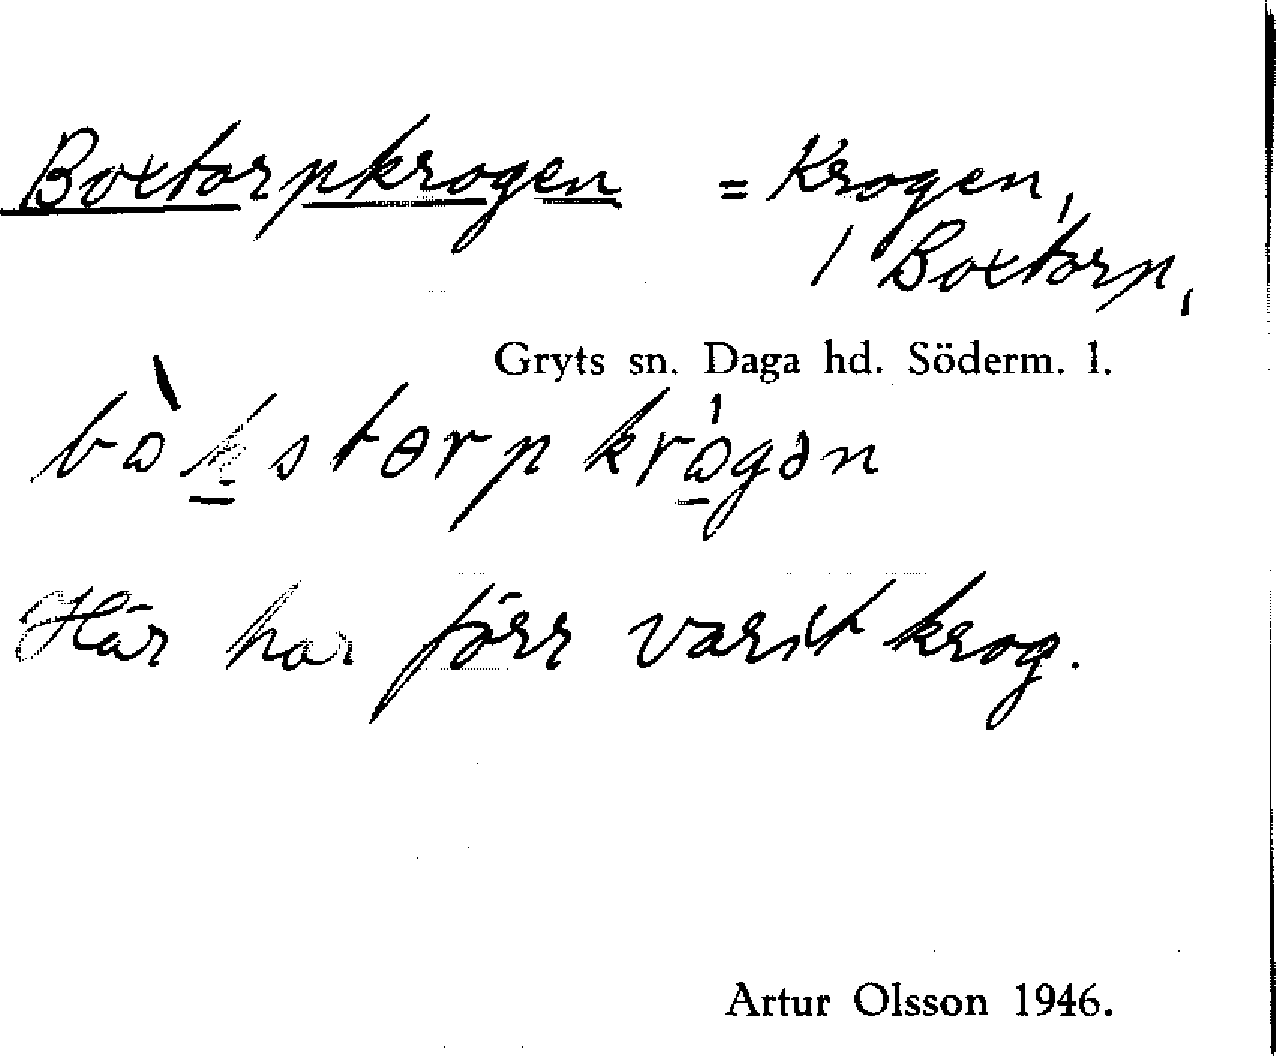 Boxtorpkrogen = Krogen,
1 Boxtorp,
Gryts sn. Daga hd. Söderm. l.
bòkstɵrpkrógən
Här har förr varit krog.
Artur Olsson 1946.